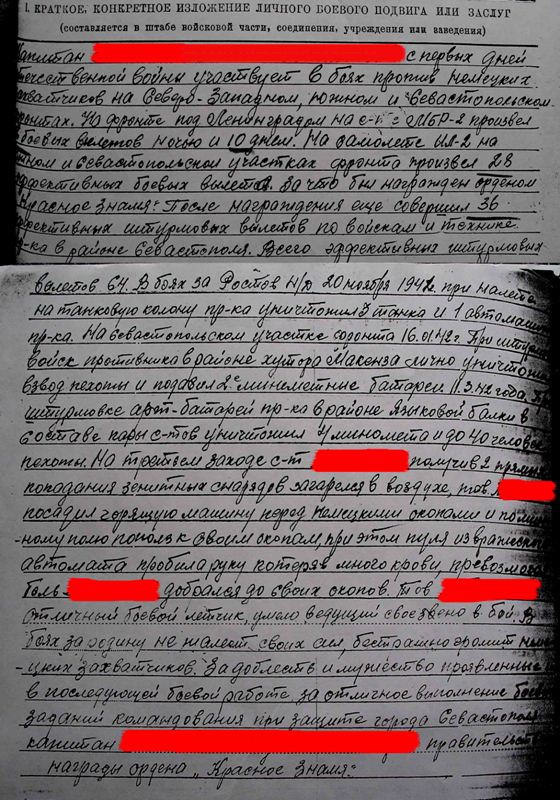 I. КРАТКОЕ, КОНКРЕТНОЕ ИЗЛОЖЕНИЕ ЛИЧНОГО БОЕВОГО ПОДВИГА ИЛИ ЗАСЛУГ
(составляется в штабе войсковой части, соединения, учреждения или заведения)
Капитан с первых дней
отечественной войны участвует в боях против немецких
захватчиков на Северо-Западном, южном и Севастопольском
фронтах. На фронте под Ленинградом на с-те МБР-2 произвел
боевых вылетов ночью и 10 днем. На самолете ИЛ-2 на
южном и Севастопольском участках фронта произвел 28
эффективных боевых вылетов. За что был награжден орденом
"Красное Знамя". После награждения еще совершил 36
эффективных штурмовых вылетов по войскам и технике
пр-ка в районе Севастополя. Всего эффективных штурмовых
вылетов 64. В боях за Ростов Н/Д 20 ноября 1942. при налете
на танковую колону пр-ка уничтожил 3 танка и 1 автомаши
пр-ка. На Севастопольском участке фронта 16.01.42г. При штурм
войск противника в районе хутора Макенза лично уничтож
взвод пехоты и подавил 2 минометные батареи 11.3.42 года. При
штурмовке арт-батарей пр-ка в районе Языковой балки в
составе пары с-тов уничтожил 4 миномета и до 40 человек
пехоты. На третьем заходе с-т получив 2 прямых
попадания зенитных снарядов загарелся в воздухе, тов.
посадил горящую машину перед Немецкими окопами и по мин
-ному полю пополз к своим окопам, при этом пуля из вражеского
автомата пробила руку потеряв много крови, превозмогая
боль добрался до своих окопов. Тов
отличный боевой летчик, умело ведущий свое звено в бой. В
боях за родину не жалеет своих сил, бесстрашно громит неме
-цких захватчиков. За доблесть и мужество проявленные
в последующей боевой работе за отличное выполнение боев
заданий командования при защите города Севастополя
капитан правительств
награды ордена "Красное Знамя".